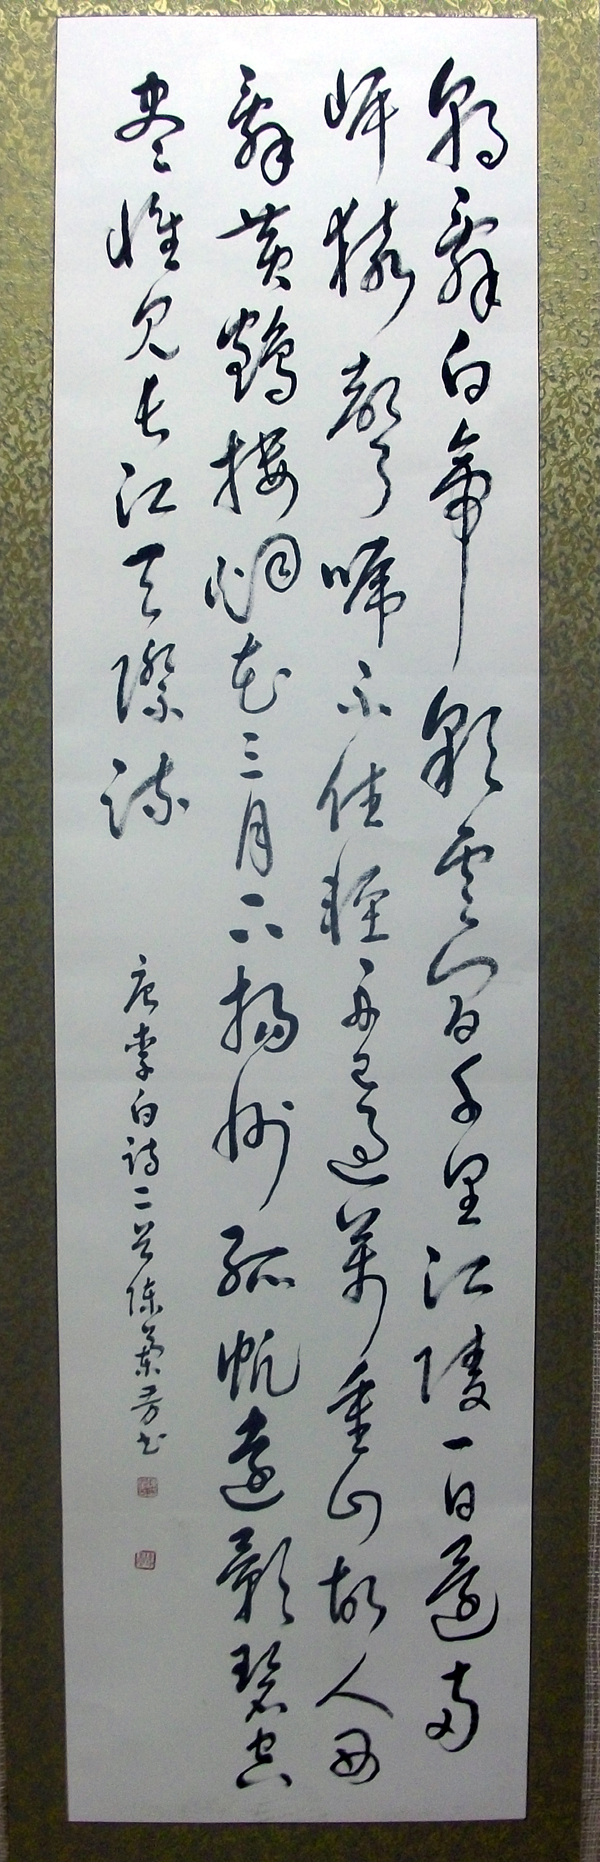 朝辭白帝彩雲間千里江陵一日還兩
岸猿聲啼不住輕舟已過萬重山故人西
辭黃鶴樓煙花三月下揚州孤帆遠影碧空
盡惟見長江天際流
唐李白詩二首陳蘭芳書